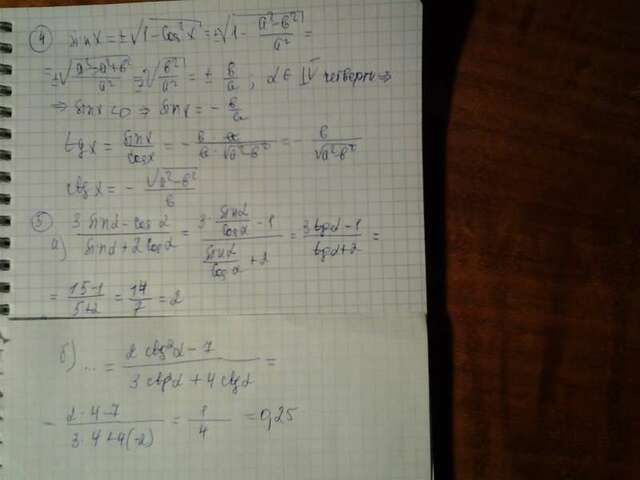 ④ sin x = ±√(1 - cos²x) = ±√(1 - (a² - b²)/a²) =
= ±√((a² - a² + b²)/a²) = ±√(b²/a²) = ± b/a ; α ∈ IV четверти ⇒
⇒ sin x < 0 ⇒ sin x = - b/a
tg x = sin x / cos x = - (b · a)/(a · √(a² - b²)) = - b/√(a² - b²)
ctg x = - √(a² - b²)/b
⑤ а) (3 sin α - cos α)/(sin α + 2 cos α) = (3 · sin α/cos α - 1)/(sin α/cos α + 2) = (3 tg α - 1)/(tg α + 2) =
= (15 - 1)/(5 + 2) = 14/7 = 2
б) ... = (2 ctg²α - 7)/(3 ctg²α + 4 ctg α) =
= (2 · 4 - 7)/(3 · 4 + 4(-2)) = 1/4 = 0,25